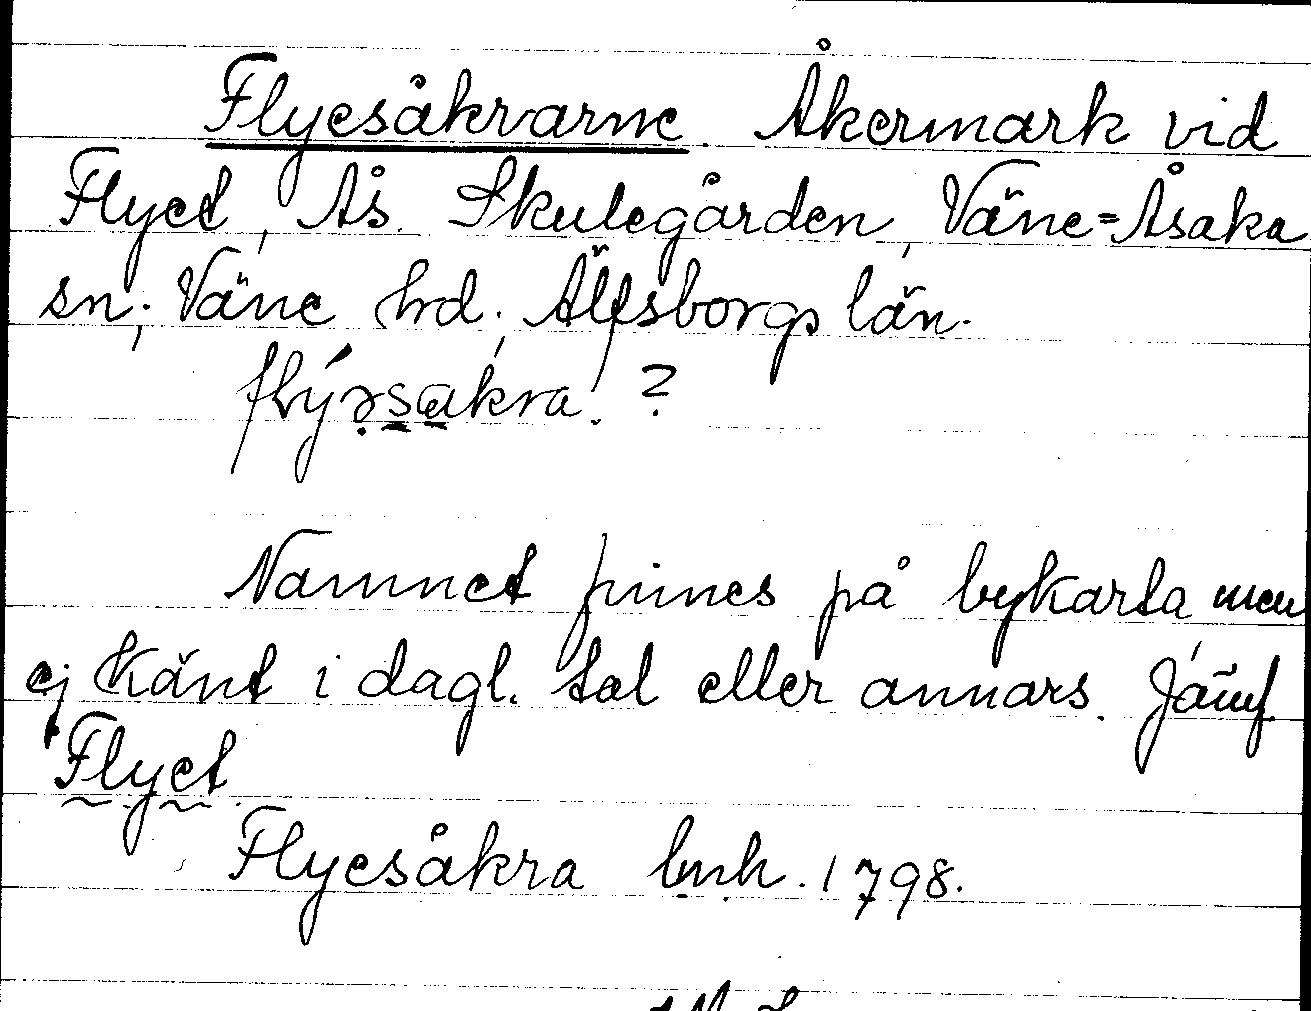 Flyesåkrarne. Åkermark vid
Flyet, Ås. Skulegården, Väne=Åsaka
sn; Väne hrd; Älfsborgs län.
Namnet finnes på bykarta men
ej känt i dagl. tal eller annars. Jämf.
Flyet.
Flyesåkra lmh. 1798.